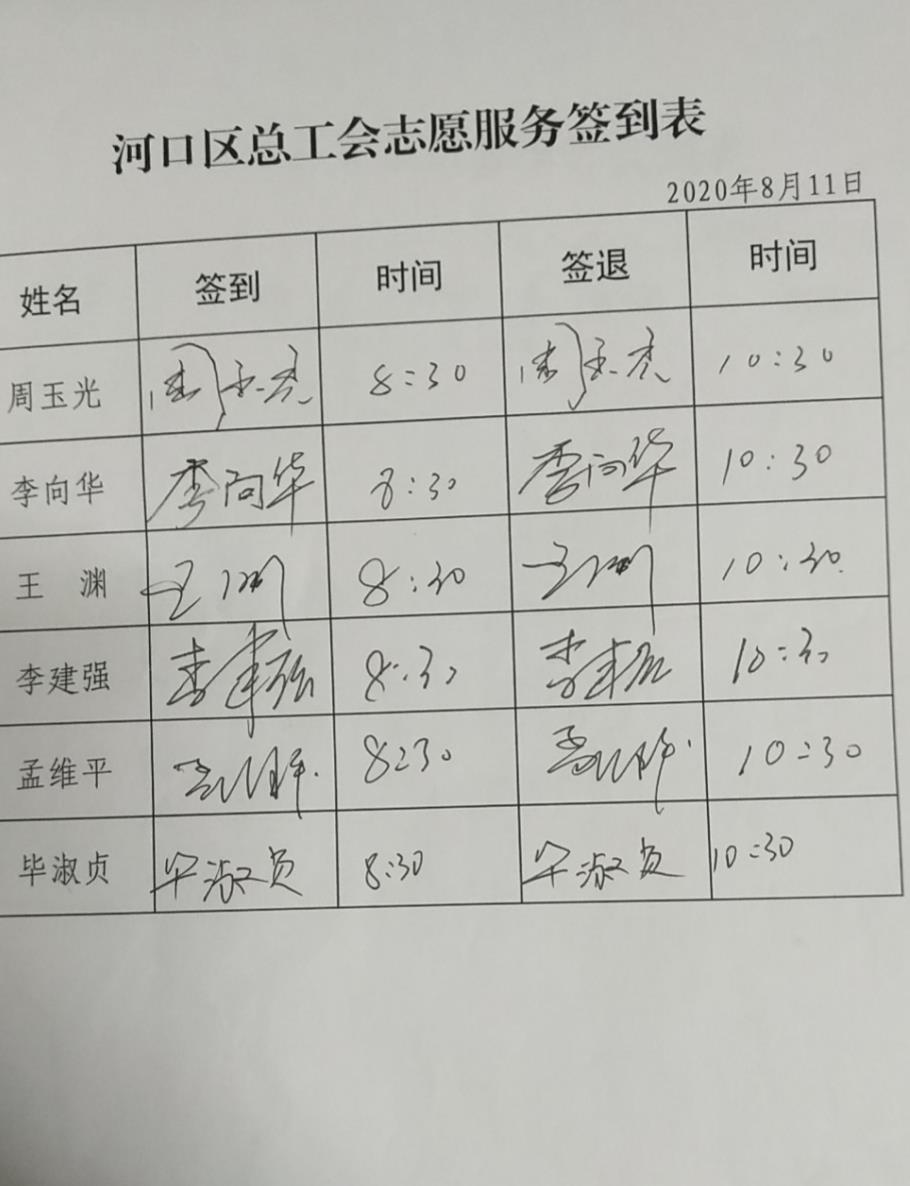 河口区总工会志愿服务签到表
2020年8月11日
姓名 签到 时间 签退 时间
周玉光 周玉光 8:30 周玉光 10:30
李向华 李向华 8:30 李向华 10:30
王 渊 王渊 8:30 王渊 10:30
李建强 李建强 8:30 李建强 10:30
孟维平 孟维平 8:30 孟维平 10:30
毕淑贞 毕淑贞 8:30 毕淑贞 10:30